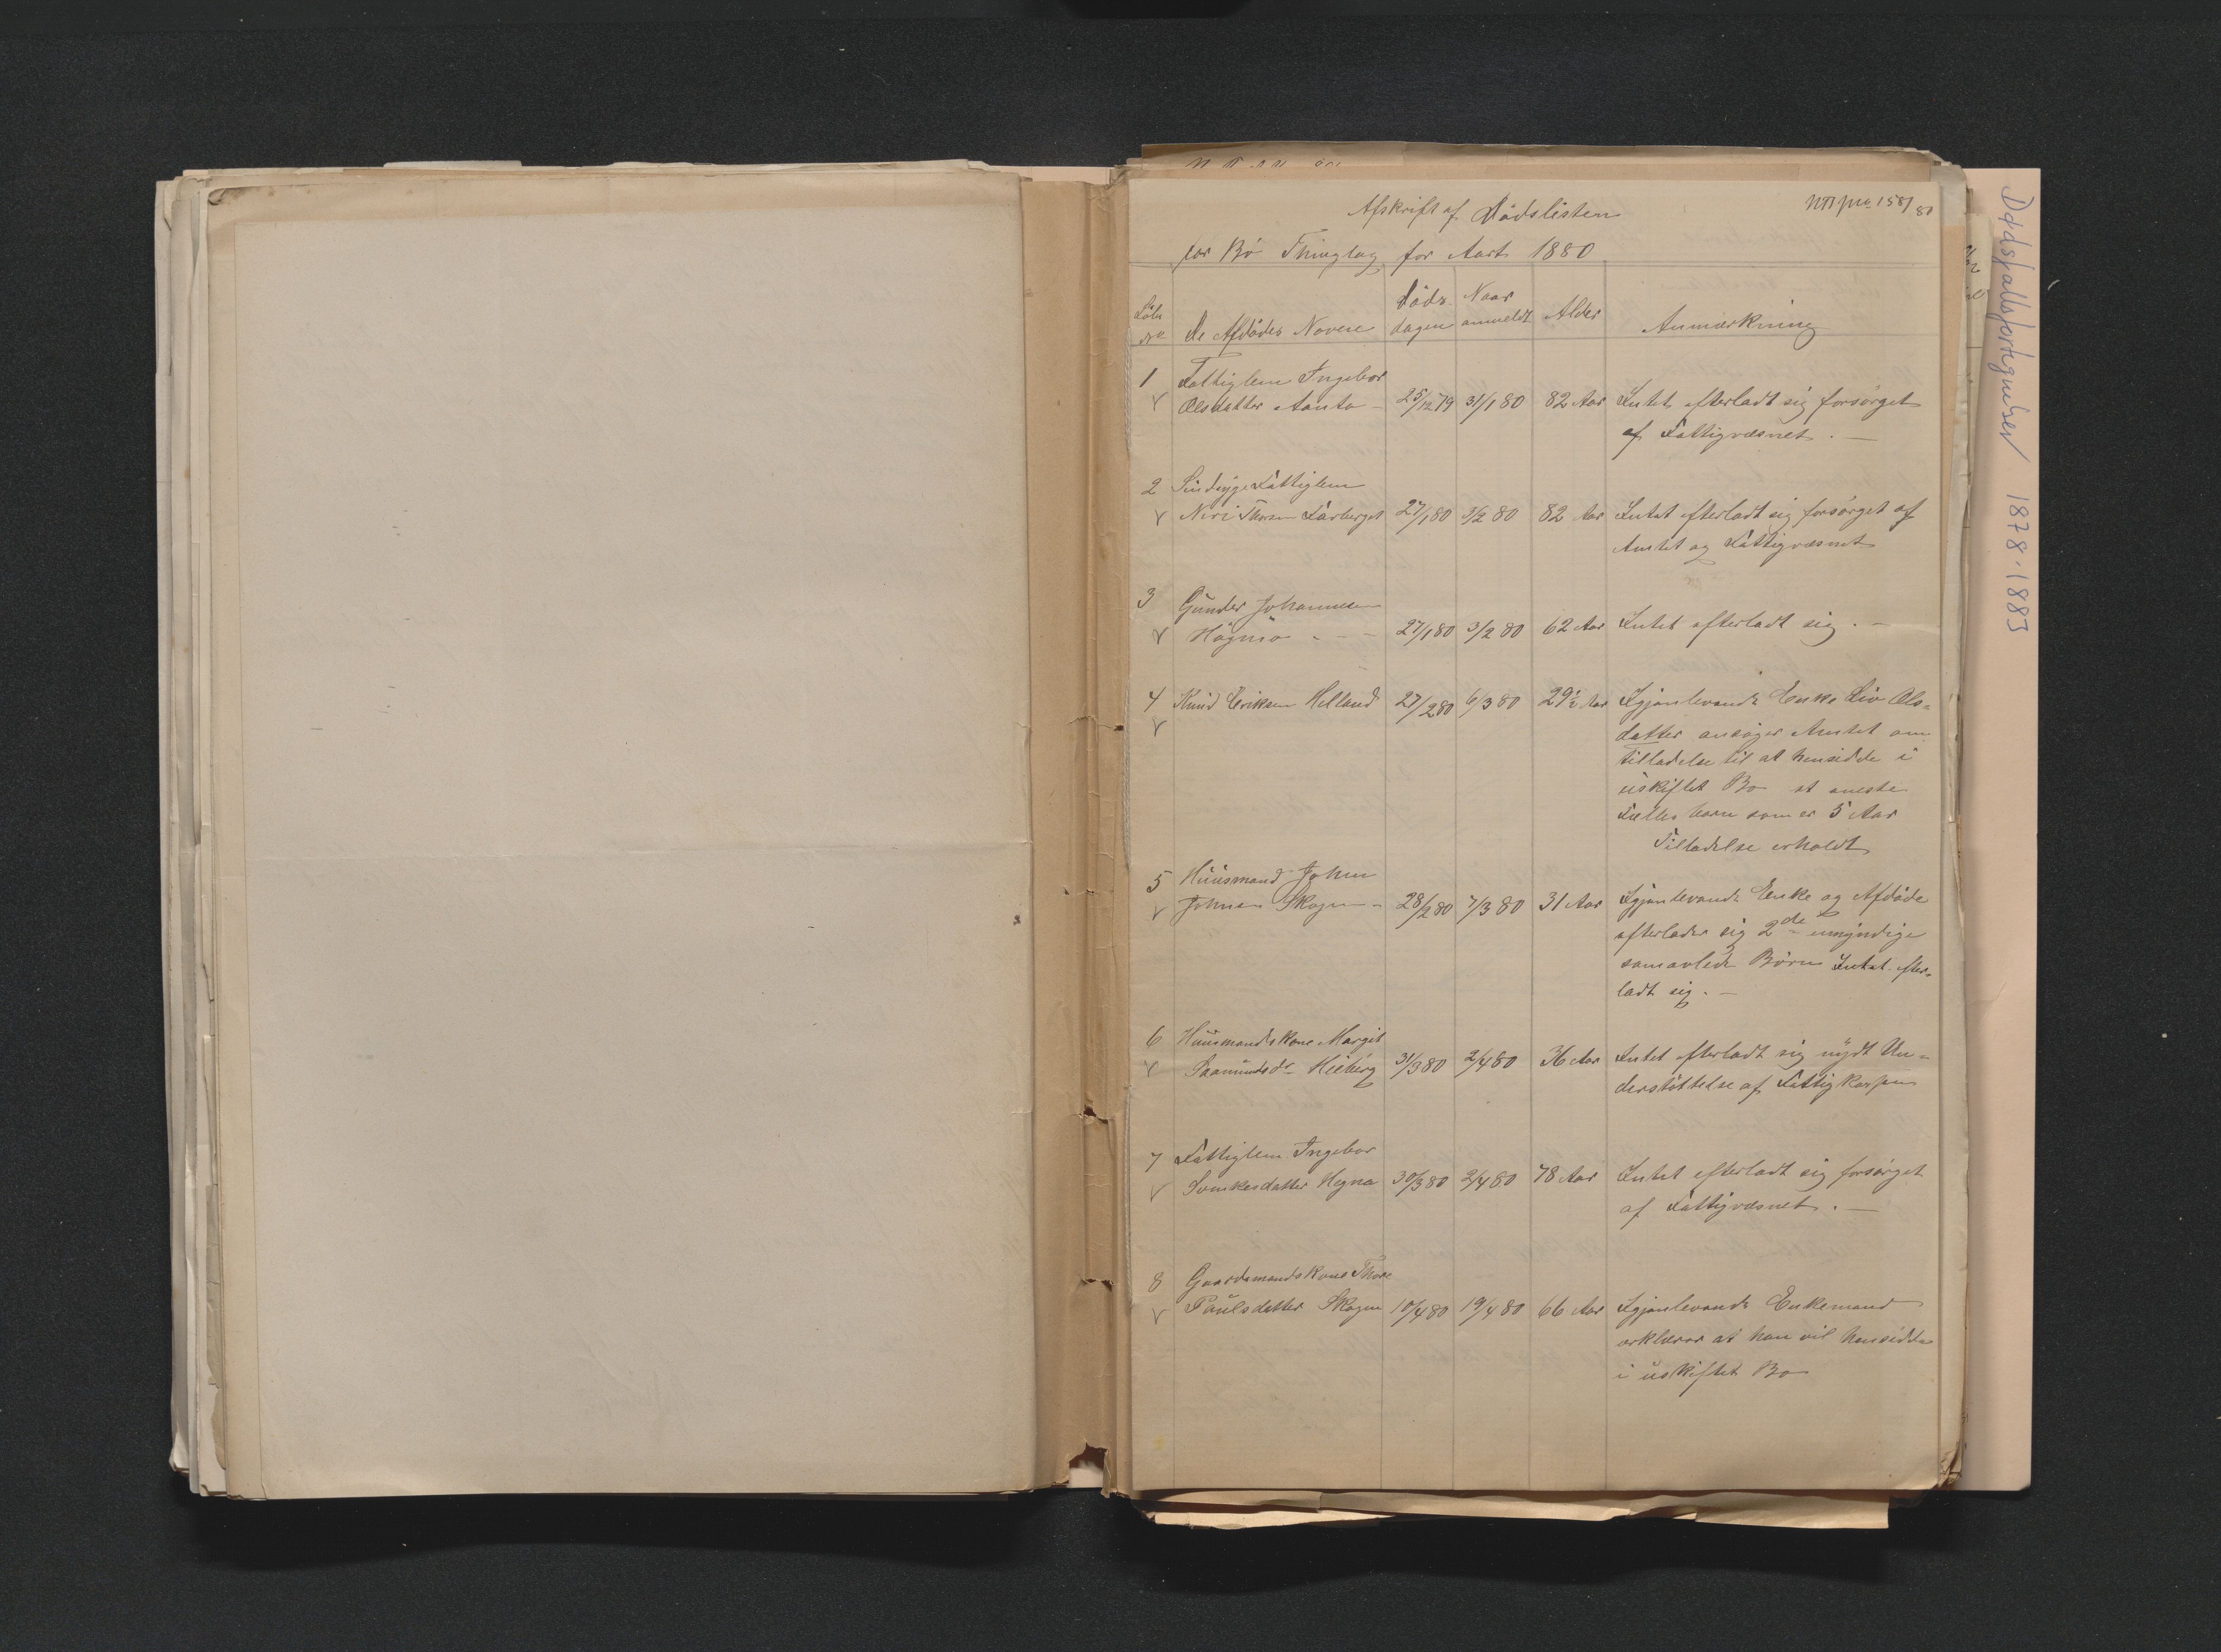 Afskrift af Dødslisten
for Bø Thinglag for Aaret 1880
Løbe No
De Afdødes Navne
Døds dagen
Naar anmeldt
Alder
Anmærkning
1 Fattiglem Ingebor
Olsdatter Aanta – 25/12 79 31/1 80 82 Aar Intet efterladt sig forsørget
af Fattigvæsnet. –
2 Sindsyge Fattiglem
Neri Thorsen 27/1 80 3/2 80 82 Aar Intet efterladt sig forsørget af
Amtet og Fattigvæsnet
3 Gunder Johannesen
27/1 80 3/2 80 62 Aar Intet efterladt sig. –
4 Knud Eriksen Helland 27/2 80 6/3 80 29½ Aar Igjenlevende Enke Liv Ols=
datter ansøger Amtet om
Tilladelse til at hensidde i
uskiftet Bo
Fælles barn som er 5 Aar
Tilladelse erholdt
5 Huusmand John
Johnsen Skogen – 28/2 80 7/3 80 31 Aar Igjenlevende Enke og Afdøde
efterlader sig 2de umyndige
samavlede Børn Intet efter=
ladt sig. –
6 Huusmandskone Margit
Saamundsdr 31/3 80 2/4 80 36 Aar Intet efterladt sig nydt Un=
derstøttelse af Fattigkassen
7 Fattiglem Ingebor
Svenkesdatter Hegna 30/3 80 2/4 80 78 Aar Intet efterladt sig forsørget
af Fattigvæsnet. –
8 Gaardsmandskone Thore
Paulsdatter Skogen 10/4 80 19/4 80 66 Aar Igjenlevende Enkemand
erklærer at han vil hensidde
i uskiftet Bo
Dødsfallsfortegnelser 1878-1883